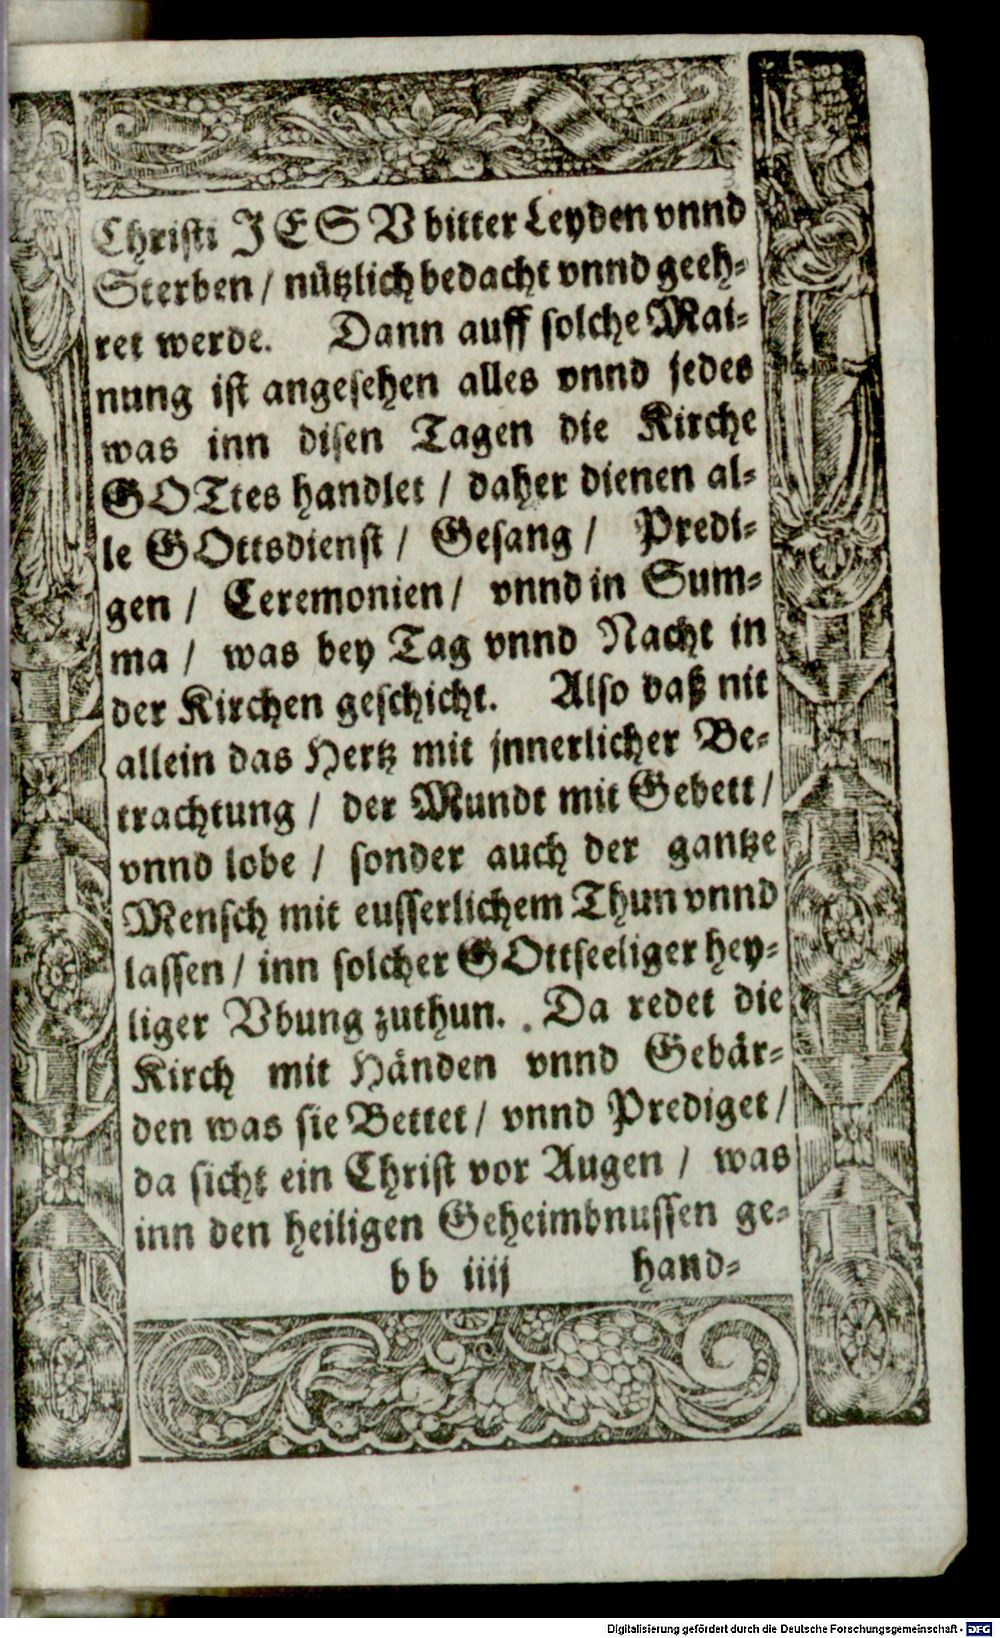 Christi JESV bitter Leyden vnnd
Sterben / nützlich bedacht vnnd geeh⸗
ret werde. Dann auff solche Mai⸗
nung ist angesehen alles vnnd jedes
was inn disen Tagen die Kirche
GOTtes handlet / daher dienen al⸗
le GOttsdienst / Gesang / Predi⸗
gen / Ceremonien / vnnd in Sum⸗
ma / was bey Tag vnnd Nacht in
der Kirchen geschicht. Also daß nit
allein das Hertz mit jnnerlicher Be⸗
trachtung / der Mundt mit Gebett /
vnnd lobe / sonder auch der gantze
Mensch mit eusserlichem Thun vnnd
lassen / inn solcher GOttseeliger hey⸗
liger Vbung zuthun. Da redet die
Kirch mit Händen vnnd Gebär⸗
den was sie Bettet / vnnd Prediget /
da sicht ein Christ vor Augen / was
inn den heiligen Geheimbnussen ge⸗
bb iiij hand⸗
Digitalisierung gefördert durch die Deutsche Forschungsgemeinschaft - DFG